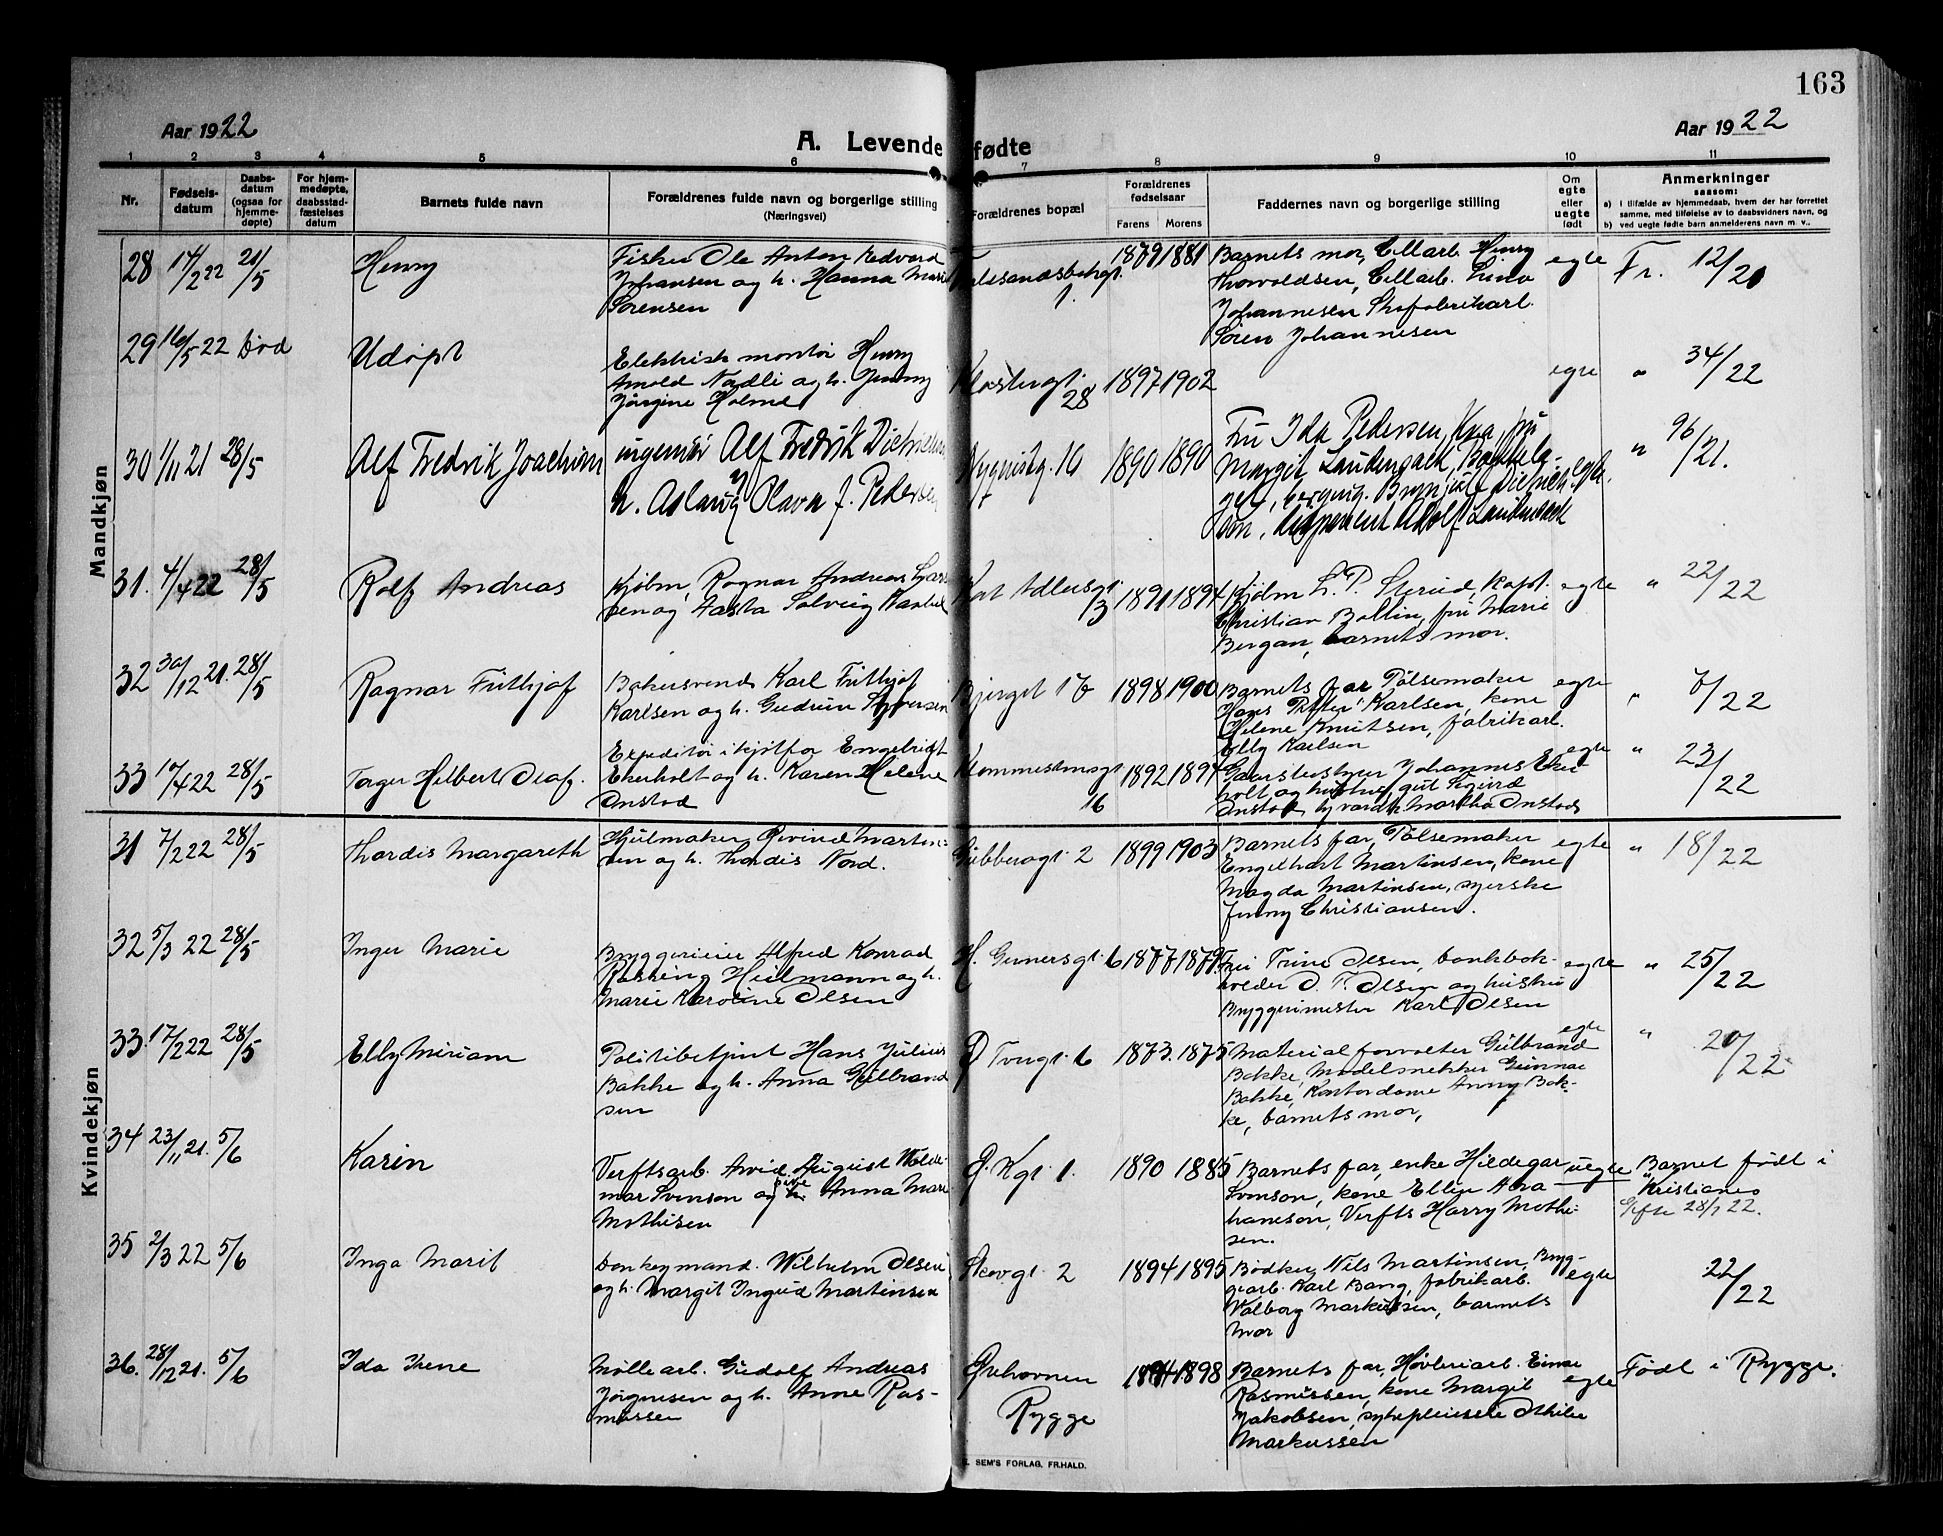 163
Aar 1922
A. Levende fødte
Aar 1922
1 2 3 4 5 6 7 8 9 10 11
Nr.
Fødsels-
datum
Daabs-
datum
(ogsaa for
hjemme-
døpte)
For hjem-
medøpte,
daabsstad-
fæstelses
datum
Barnets fulde navn
Forældrenes fulde navn og borgerlige stilling
(Næringsvei)
Forældrenes bopæl
Forældrenes
fødselsaar
Farens Morens
Faddernes navn og borgerlige stilling
Om
egte
eller
uegte
født
Anmerkninger
saasom:
a) I tilfælde av hjemmedaab, hvem der har forrettet
samme, med tilføielse av to daabsvidners navn, og
b) ved uegte fødte barn anmelderens navn m. v..
Mandkjøn
28 17/2 22 21/5 Henry
Fisker Ole Anton Edvard
Johansen og h. Hanna Marie
Sørensen
1.
1879 1881
Barnets mor, Cellarb. Henry
Thorvoldsen, Cellarb.
Johannesen Skofabrikarb.
Søren Johannesen
egte Fr. 12/20
29 16/5 22 Død Udøpt
Elektrisk montør Henry
Arnold Nødli og h. Jenny
Jørgine Holme
Klostergt.
28
1897 1902
egte " 34/22
30 1/11 21 28/5 Alf Fredrik Joachim
ingeniør Alf Fredrik Dietrichson
h. Aslaug Olava f. Pedersen
Nygaardsg. 16
1890 1890
Fru Ida Pedersen, fru
Margit Laudengack,
disponent Adolf Laudengack
" 96/21.
31. 4/4 22 28/5 Rolf Andreas
Kjøbm. Ragnar Andreas
sen og Aasta Solveig
Kort Adlersgt.
3
1891 1894
Kjøbm L. P. Sterud, kapt.
Christian Bollin, fru Marie
Bergan, barnets mor.
egte " 22/22
32 30/12 21. 28/5 Ragnar Frithjof
Bakersvend Karl Frithjof
Karlsen og h. Gudrun Syversen
Bjerget 17b
1898 1900
Barnets far Pølsemaker
Hans Petter Karlsen, kone
Helene Knutsen, fabrikarb.
Elly Karlsen
egte " 7/22
33 17/4 22 28/5 Torger Hilbert Olaf.
Expeditør i kjøtfor Engebrigt
Ekerholt og h. Karen Helene
Onstad
16
1892 1894
Gaardbestyrer Johannes Eker-
holt og hustru, gut Sigurd
Onstad, Martha Onstad
egte " 23/22
Kvindekjøn
31 7/2 22 28/5 Thordis Margareth
Hjulmaker Øivind Martin-
sen og h. Thordis Nord.
Gubberogt. 2
1899 1903
Barnets far, Pølsemaker
Engelhart Martinsen, kone
Magda Martinsen, syerske
Jenny Christiansen.
egte " 18/22
32 5/3 22 28/5 Inger Marie
Bryggerieier Alfred Konrad
Heilmann og h.
Marie Karoline Olsen
H. Gernersgt. 6
1877 1879
Fru Trine Olsen, bankbok-
holder O. T. Olsen og hustru
Bryggerimester Karl Olsen
egte " 25/22
33. 17/2 22 28/5 Elly Miriam
Politibetjent Hans Julius
Bakke og h. Anna Gulbrand
sen
D Tvergt. 6
1873. 1875
Materialforvalter Gulbrand
Bakke, Modelsnekker Gunnar
Bakke, Kontordame Anny Bak-
ke, barnets mor,
egte " 20/22
34 23/11 21. 5/6 Karin
Verftsarb. Arvid August Wolde-
mar Svenson og pike Anna Marie
Mathisen
Ø. Kgt. 1.
1890 1885
Barnets far, enke Hildegar
Svenson, kone Ellen Abra-
hamson, Verfts Harry Mathi-
sen.
uegte
Barnet født i
Kristiania
Gifte 28/1 22.
35 2/3 22 5/6 Inga Marit
Donkeymand. Wilhelm Olsen
og h. Margit Ingrid Martinsen
Skovgt. 2
1894 1895
Bødker Nils Martinsen, Bryg-
giarb. Karl Bang, fabrikarb.
Valborg Markussen, barnets
mor
egte 22/22
36. 28/12 21. 5/6 Ida Irene
Møllearb. Gudolf Andreas
Jørgensen og h. Anne Ras-
mussen
Orehavnen
Rygge
1894 1898
Barnets far, Høvleriarb. Einar
Rasmussen, kone Margit
Jakobsen, sykepleierske Othilie
Markussen
egte Født i Rygge.
E. SEM'S FORLAG, FR.HALD.